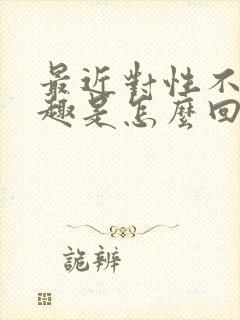 最近對性不
趣是怎麼回
詭辨